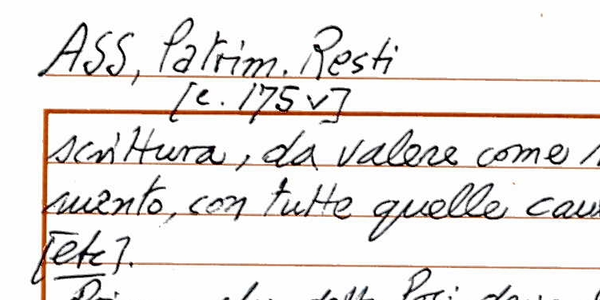 ASS, Patrim. Resti
[c. 175 v]
scrittura, da valere come
mento, con tutte quelle
[etc].